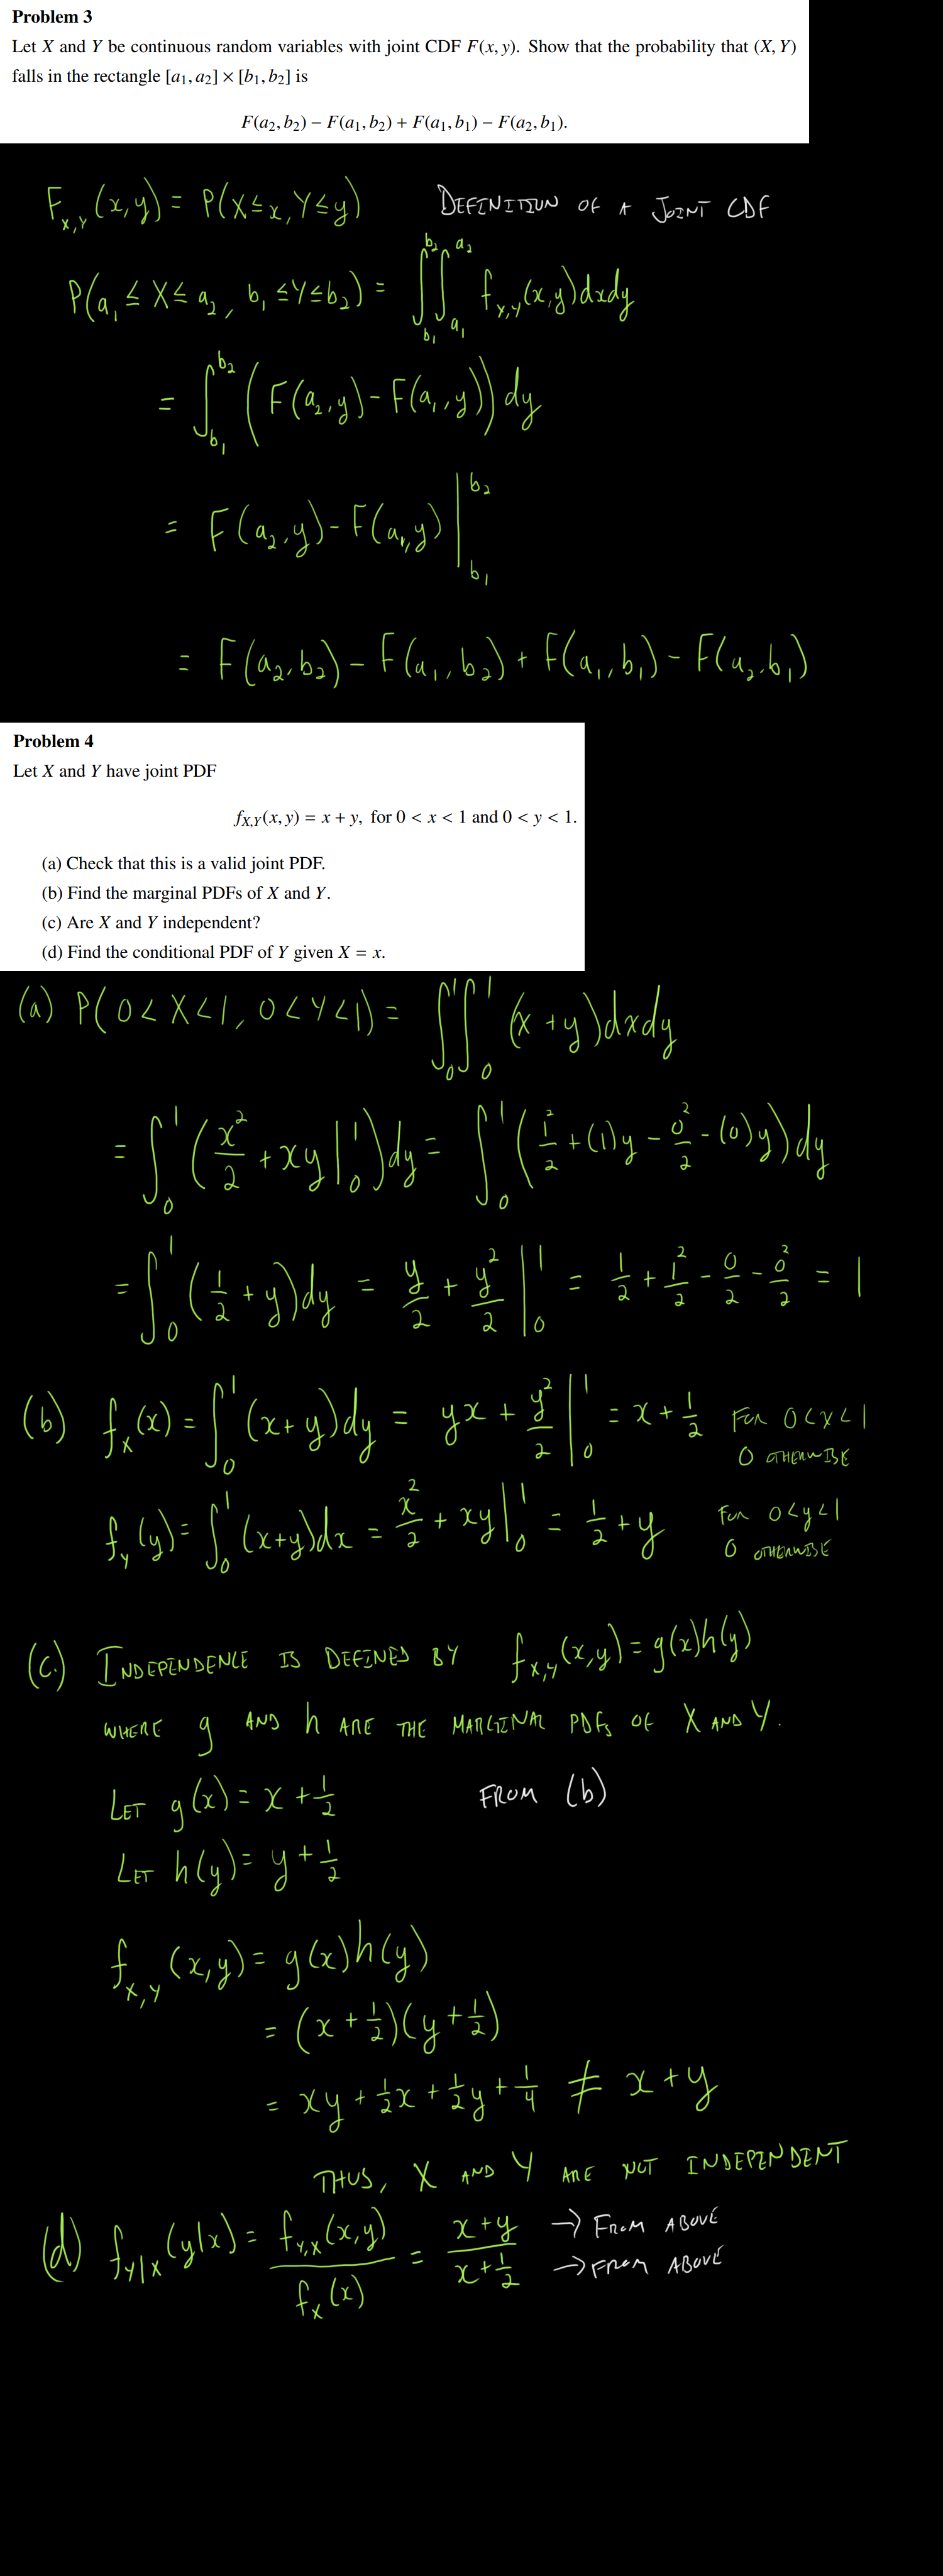 Problem 3
Let X and Y be continuous random variables with joint CDF F(x, y). Show that the probability that (X, Y)
falls in the rectangle [a₁, a₂] × [b₁, b₂] is
F(a₂, b₂) − F(a₁, b₂) + F(a₁, b₁) − F(a₂, b₁).
F_{X,Y}(x,y) = P(X≤x, Y≤y) DEFINITION OF A JOINT CDF
P(a₁ ≤ X ≤ a₂, b₁ ≤ Y ≤ b₂) = ∫_{b₁}^{b₂} ∫_{a₁}^{a₂} f_{X,Y}(x,y)dxdy
= ∫_{b₁}^{b₂} (F(a₂,y) − F(a₁,y)) dy
= F(a₂,y) − F(a₁,y) |_{b₁}^{b₂}
= F(a₂,b₂) − F(a₁,b₂) + F(a₁,b₁) − F(a₂,b₁)
Problem 4
Let X and Y have joint PDF
f_{X,Y}(x, y) = x + y, for 0 < x < 1 and 0 < y < 1.
(a) Check that this is a valid joint PDF.
(b) Find the marginal PDFs of X and Y.
(c) Are X and Y independent?
(d) Find the conditional PDF of Y given X = x.
(a) P(0<X<1, 0<Y<1) = ∫_0^1 ∫_0^1 (x+y)dxdy
= ∫_0^1 (x²/2 + xy |_0^1) dy = ∫_0^1 (1²/2 + (1)y − 0²/2 − (0)y) dy
= ∫_0^1 (1/2 + y)dy = y/2 + y²/2 |_0^1 = 1/2 + 1²/2 − 0/2 − 0²/2 = 1
(b) f_X(x) = ∫_0^1 (x+y)dy = yx + y²/2 |_0^1 = x + 1/2 FOR 0<x<1
0 OTHERWISE
f_Y(y) = ∫_0^1 (x+y)dx = x²/2 + xy |_0^1 = 1/2 + y FOR 0<y<1
0 OTHERWISE
(c.) INDEPENDENCE IS DEFINED BY f_{X,Y}(x,y) = g(x)h(y)
WHERE g AND h ARE THE MARGINAL PDFs OF X AND Y.
LET g(x) = x + 1/2 FROM (b)
LET h(y) = y + 1/2
f_{X,Y}(x,y) = g(x)h(y)
= (x + 1/2)(y + 1/2)
= xy + 1/2x + 1/2y + 1/4 ≠ x+y
THUS, X AND Y ARE NOT INDEPENDENT
(d) f_{Y|X}(y|x) = f_{Y,X}(x,y)/f_X(x) = (x+y)/(x+1/2) → FROM ABOVE
→ FROM ABOVE